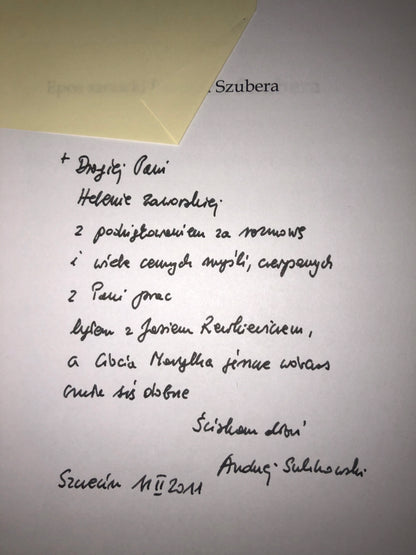 Szubera
+ Drogiej Pani
Helenie Zaworskiej
z podziękowaniem za rozmowę
i wiele cennych myśli, czerpanych
z Pani prac
byłem z Jasiem
a Ciocia Marylka
czuje się dobrze
Ściskam dłoń
Andrzej Sulikowski
Szczecin 11 II 2011